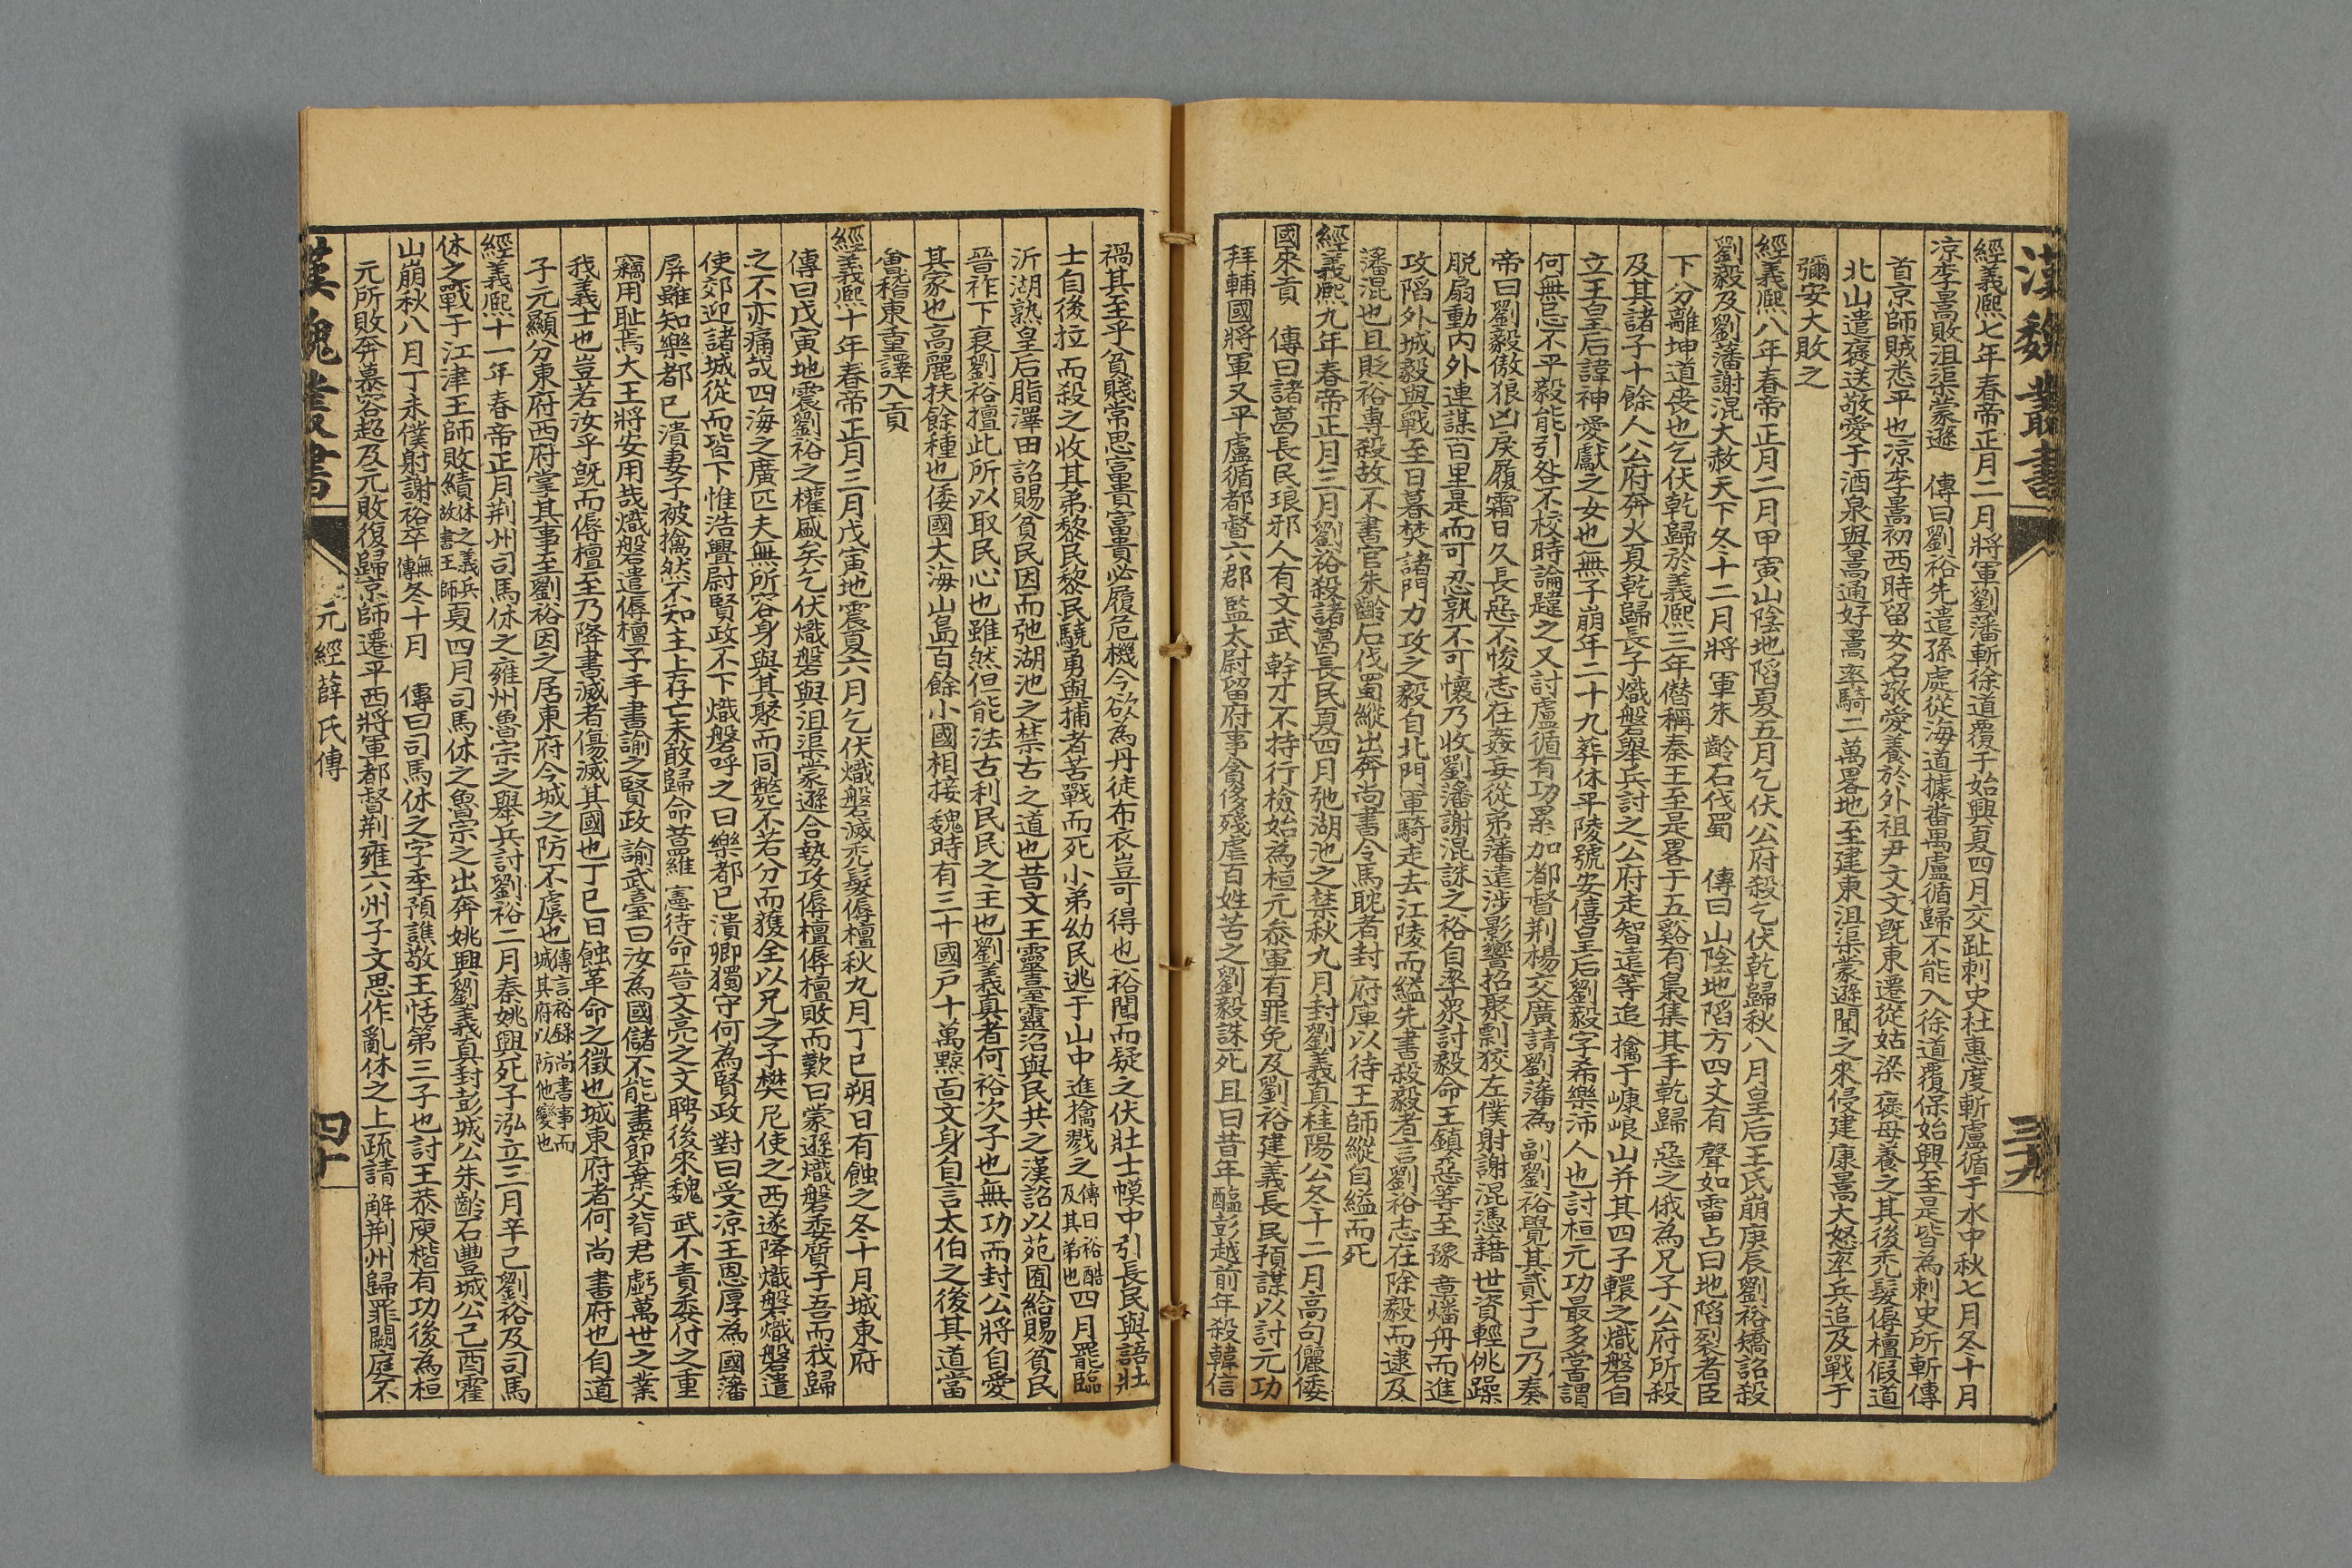 漢魏叢書
三十九
經義熙七年春帝正月二月將軍劉藩斬徐道覆于始興夏四月交趾刺史杜惠度斬盧循于水中秋七月冬十月
涼李暠敗沮渠蒙遜　傳曰劉裕先遣孫處從海道據番禺盧循歸不能入徐道覆保始興至是皆為刺史所斬傳
首京師賊悉平也涼李暠初西時留女名敬愛養於外祖尹文文旣東遷從姑梁襃母養之其後禿髮傉檀假道
北山遣襃送敬愛于酒泉與暠通好暠率騎二萬畧地至建東沮渠蒙遜聞之來侵建康暠大怒率兵追及戰于
彌安大敗之
經義熙八年春帝正月二月甲寅山陰地陷夏五月乞伏公府殺乞伏乾歸秋八月皇后王氏崩庚辰劉裕矯詔殺
劉毅及劉藩謝混大赦天下冬十二月將軍朱齡石伐蜀　傳曰山陰地陷方四丈有聲如雷占曰地陷裂者臣
下分離坤道喪也乞伏乾歸於義熙三年僭稱秦王至是畧于五谿有梟集其手乾歸惡之俄為兄子公府所殺
及其諸子十餘人公府奔大夏乾歸長子熾磐舉兵討之公府走智遠等追擒于嵻㟍山并其四子轘之熾磐自
立王皇后諱神愛獻之女也無子崩年二十九葬休平陵號安僖皇后劉毅字希樂沛人也討桓元功最多嘗謂
何無忌不平毅能引咎不校時論韙之又討盧循有功累加都督荆楊交廣請劉藩為副劉裕覺其貳于己乃奏
帝曰劉毅傲狠凶戾履霜日久長惡不悛志在姦妄從弟藩遠涉影響招聚剽狡左僕射謝混憑藉世資輕佻躁
脱扇動内外連謀百里是而可忍孰不可懷乃收劉藩謝混誅之裕自率衆討毅命王鎮惡等至豫章燔舟而進
攻陷外城毅與戰至日暮焚諸門力攻之毅自北門單騎走去江陵而縊先書殺毅者言劉裕志在除毅而逮及
藩混也且貶裕專殺故不書官朱齡石伐蜀縱出奔尚書令馬耽者封府庫以待王師縱自縊而死
經義熙九年春帝正月三月劉裕殺諸葛長民夏四月弛湖池之禁秋九月封劉義真桂陽公冬十二月高句儷倭
國來貢　傳曰諸葛長民琅邪人有文武幹才不持行檢始為桓元叅軍有罪免及劉裕建義長民預謀以討元功
拜輔國將軍又平盧循都督六郡監太尉留府事貪侈殘虐百姓苦之劉毅誅死且曰昔年醢彭越前年殺韓信
禍其至乎貧賤常思富貴富貴必履危機今欲為丹徒布衣豈可得也裕聞而疑之伏壯士幙中引長民與語壯
士自後拉而殺之收其弟黎民黎民驍勇與捕者苦戰而死小弟幼民逃于山中進擒戮之傳曰裕酷及其弟也四月罷臨
沂湖熟皇后脂澤田詔賜貧民因而弛湖池之禁古之道也昔文王靈臺靈沼與民共之漢詔以苑囿給賜貧民
晉祚下衰劉裕擅此所以取民心也雖然但能法古利民民之主也劉義真者何裕次子也無功而封公將自愛
其家也高麗扶餘種也倭國大海山島百餘小國相接魏時有三十國戶十萬黥面文身自言太伯之後其道當
會稽東重譯入貢
經義熙十年春帝正月三月戊寅地震夏六月乞伏熾磐滅禿髮傉檀秋九月丁巳朔日有蝕之冬十月城東府
傳曰戊寅地震劉裕之權盛矣乞伏熾磐與沮渠蒙遜合勢攻傉檀傉檀敗而歎曰蒙遜熾磐委質于吾而我歸
之不亦痛哉四海之廣匹夫無所容身與其聚而同斃不若分而獲全以兄之子樊尼使之西遂降熾磐熾磐遣
使郊迎諸城從而皆下惟浩亹尉賢政不下熾磐呼之曰樂都已潰卿獨守何為賢政對曰受涼王恩厚為國藩
屏雖知樂都已潰妻子被擒然不知主上存亡未敢歸命昔羅憲待命晉文亮之文聘後來魏武不責委付之重
竊用耻焉大王將安用哉熾磐遣傉檀子手書諭之賢政諭武臺曰汝為國儲不能盡節棄父背君虧萬世之業
我義士也豈若汝乎旣而傉檀至乃降書滅者傷滅其國也丁巳日蝕革命之徵也城東府者何尚書府也自道
子元顯分東府西府掌其事至劉裕因之居東府今城之防不虞也傳言裕錄尚書事而城其府以防他變也
經義熙十一年春帝正月荆州司馬休之雍州魯宗之舉兵討劉裕二月秦姚興死子泓立三月辛巳劉裕及司馬
休之戰于江津王師敗績休之義兵故書王師夏四月司馬休之魯宗之出奔姚興劉義真封彭城公朱齡石豐城公己酉霍
山崩秋八月丁未僕射謝裕卒無傳冬十月　傳曰司馬休之字季預譙敬王恬第三子也討王恭庾楷有功後為桓
元所敗奔慕容超及元敗復歸京師遷平西將軍都督荆雍六州子文思作亂休之上疏請解荆州歸罪闕庭不
漢魏叢書
元經薛氏傳
四十